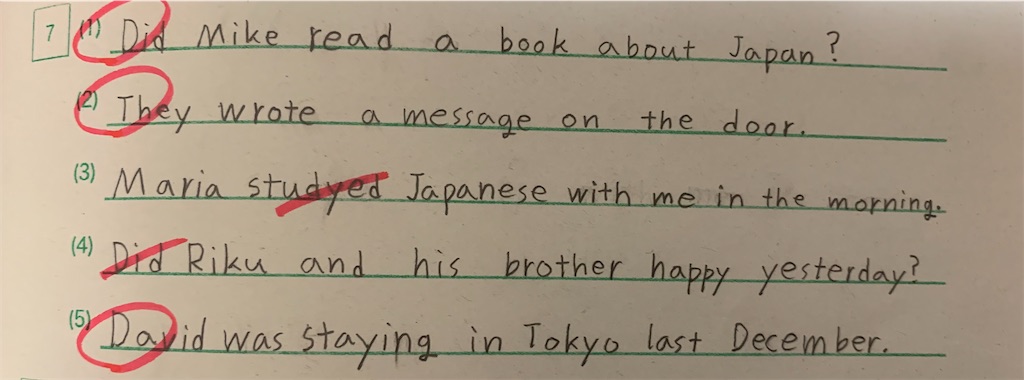 7 (1) Did Mike read a book about Japan?
(2) They wrote a message on the door.
(3) Maria studyed Japanese with me in the morning.
(4) Did Riku and his brother happy yesterday?
(5) David was staying in Tokyo last December.